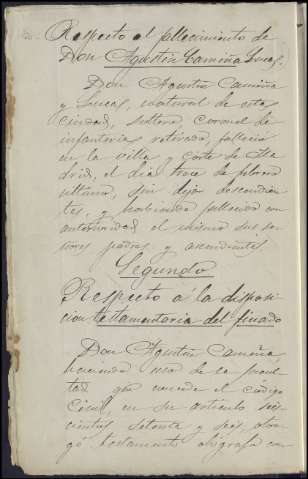 Respecto al fallecimiento de
Don Agustín Camiña Lucas.
Don Agustín Camiña
y Lucas, natural de esta
ciudad, soltero coronel de
infantería retirado, falleció
en la villa y corte de Ma
drid, el día trece de febrero
último, sin dejar descendien
tes, y habiendo fallecido con
anterioridad el mismo sus se
ñores padres y ascendientes
Segundo
Respecto á la disposi
cion testamentaria del finado
Don Agustín Camiña
haciendo uso de la facul
tad que concede el código
Civil, en su artículo seis
cientos setenta y seis otor
gó testamento ológrafo en